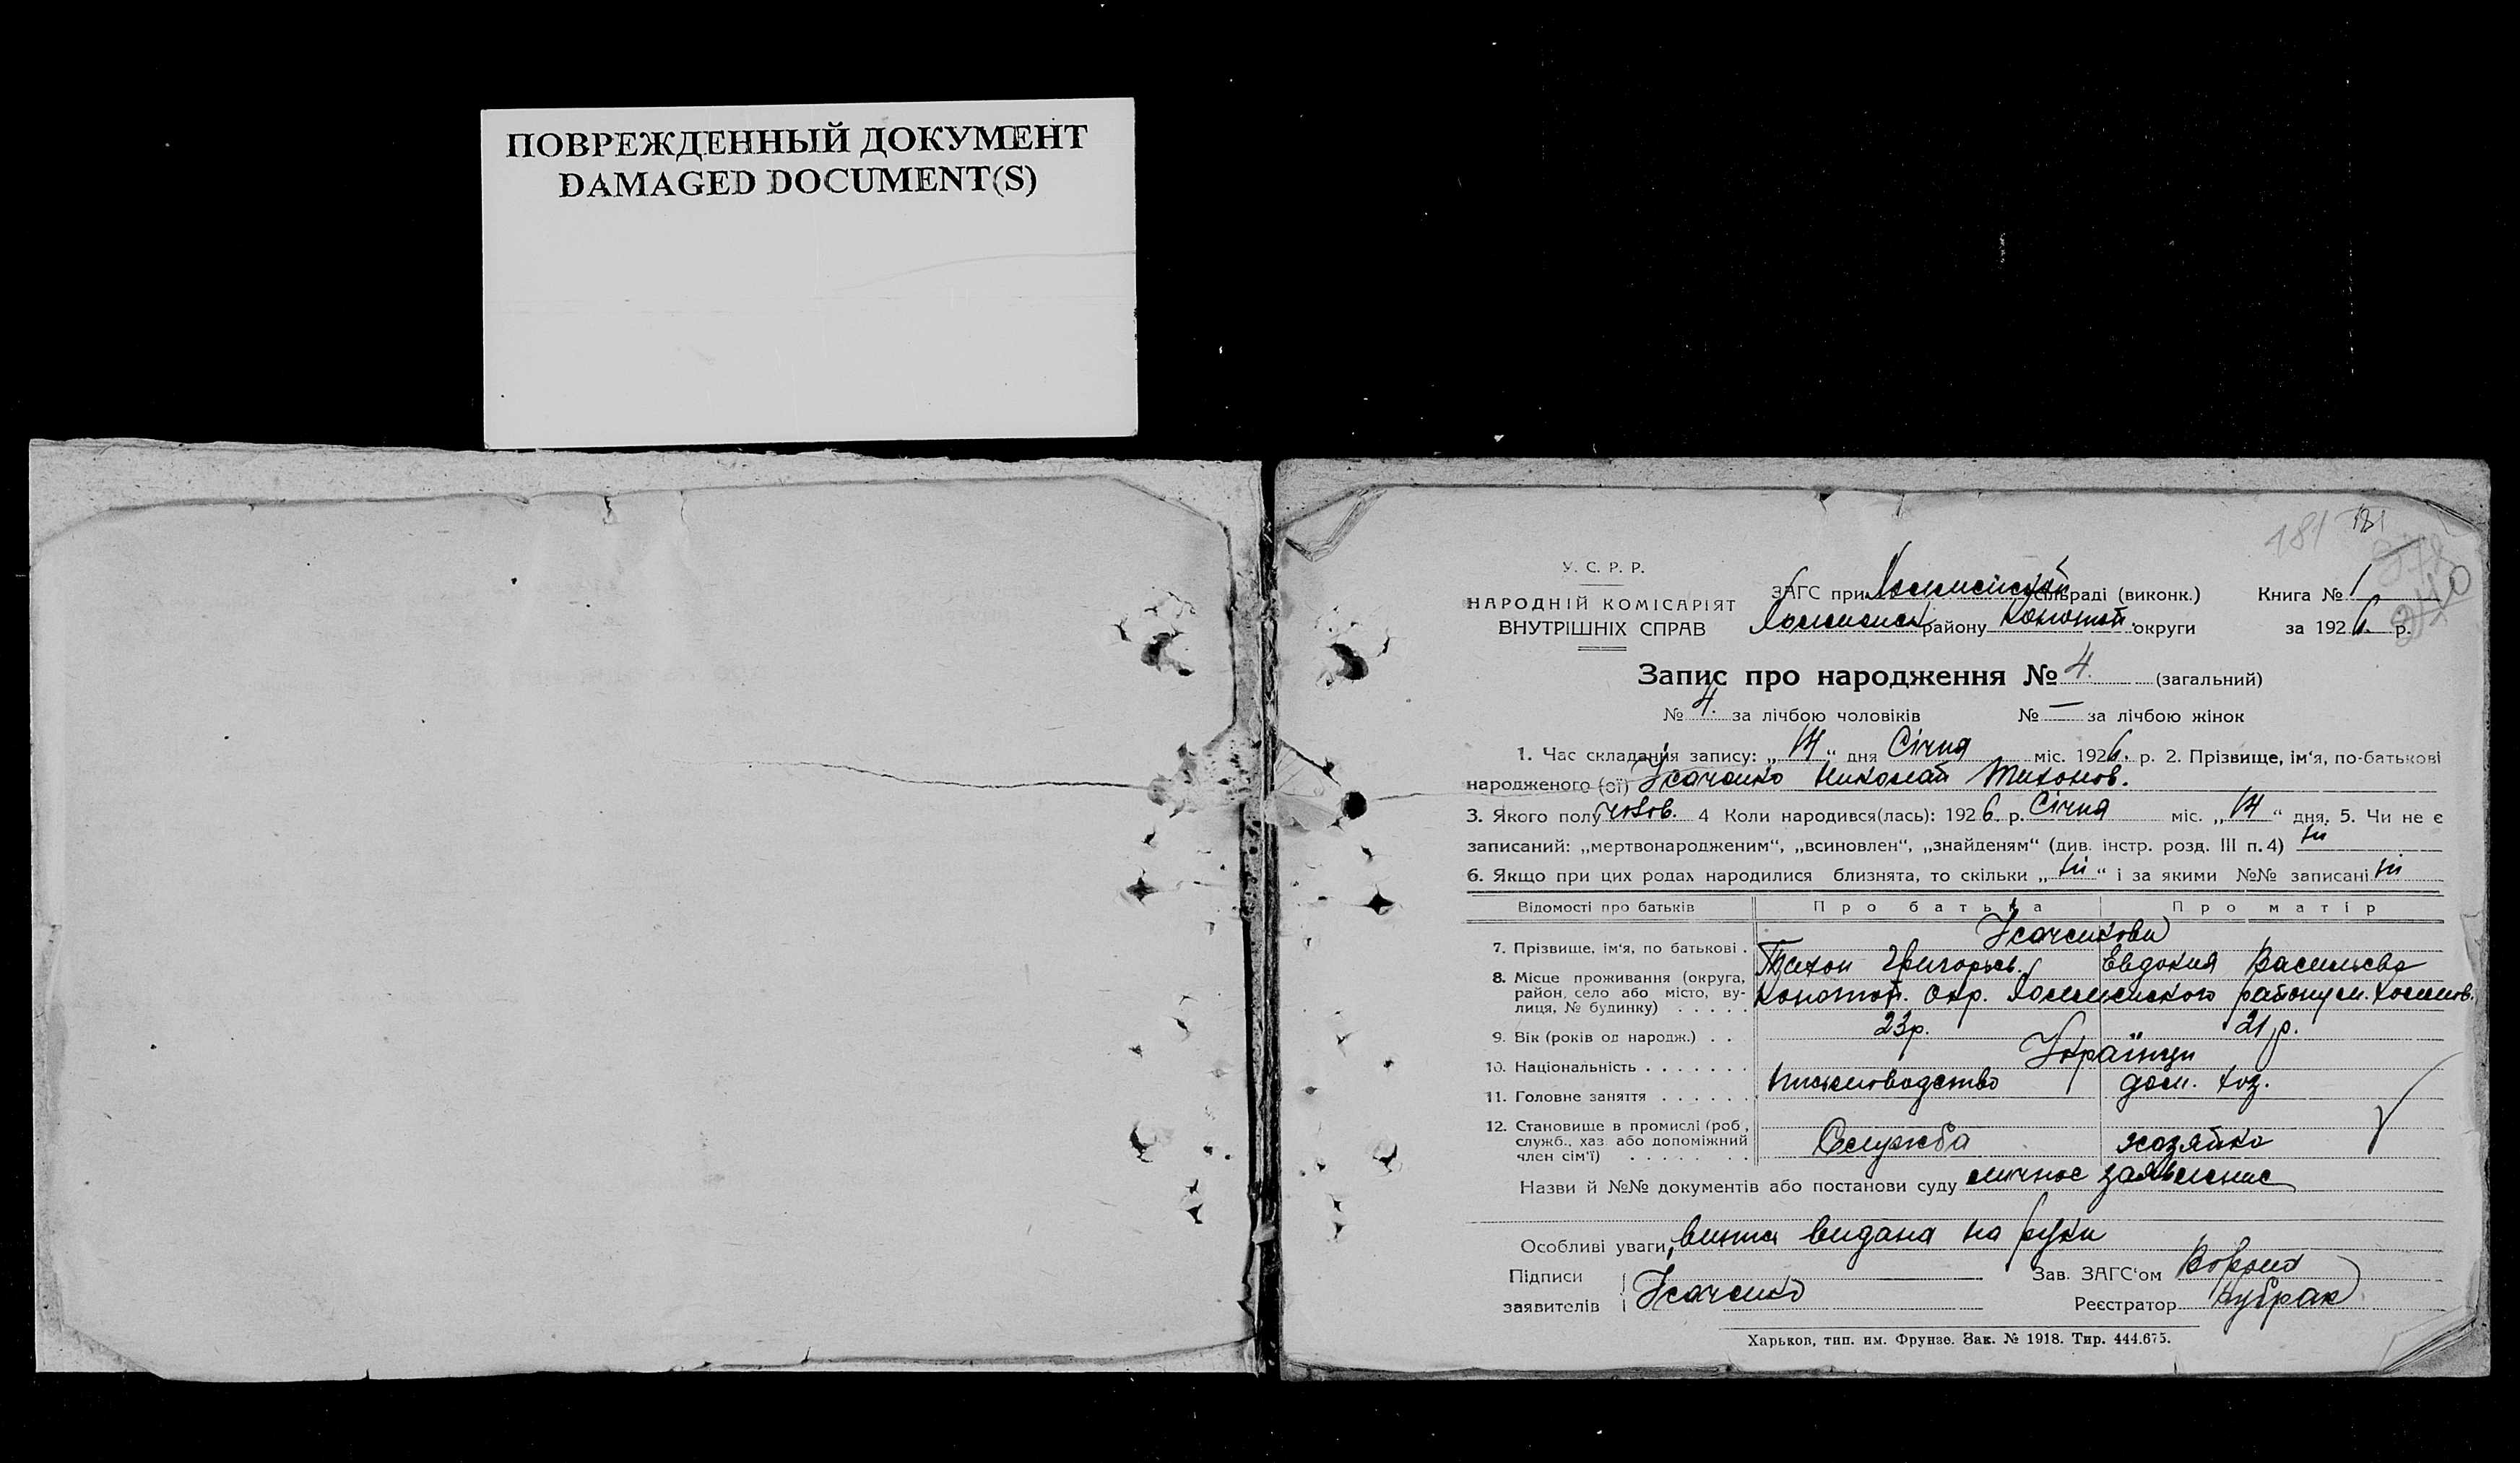 ПОВРЕЖДЕННЫЙ ДОКУМЕНТ
DAMAGED DOCUMENT(S)
181 181
240
У. С. Р. Р.
НАРОДНІЙ КОМІСАРІЯТ
ВНУТРІШНІХ СПРАВ
ЗАГС при сільраді (виконк.)
району Конотоп. округи
Книга № 1
за 1926 р.
Запис про народження № 4. (загальний)
№ 4. за лічбою чоловіків № — за лічбою жінок
1. Час складання запису: „14“ дня Січня міс. 1926. р. 2. Прізвище, ім‘я, по-батькові
народженого (ої) Усаченко Николай Тихонов.
3. Якого полу чолов. 4 Коли народився(лась): 1926. р. Січня міс. „14“ дня. 5. Чи не є
записаний: „мертвонародженим“, „всиновлен“, „знайденям“ (див. інстр. розд. III п. 4) ні
6. Якщо при цих родах народилися близнята, то скільки „ні“ і за якими №№ записані ні
Відомості про батьків Про батька Про матір
Усаченкови
7. Прізвище, ім‘я, по батькові . Тихон Григорьев. Евдокия Васильева
8. Місце проживання (округа, район, село або місто, вулиця, № будинку) . . . . . Конотоп. Окр. району
9. Вік (років од народж.) . . 23р. „ 21 р.
10. Національність . . . . . . . Українци
11. Головне заняття . . . . . . Письмоводство дом. хоз.
12. Становище в промислі (роб., служб., хаз або допоміжний член сім‘ї) . . . . . . . Служба хозяйка
Назви й №№ документів або постанови суду личное заявление
Особливі уваги, випись видана на руки
Підписи
заявителів Усаченко
Зав. ЗАГС‘ом
Реєстратор Кубрак
Харьков, тип. им. Фрунзе. Зак. № 1918. Тир. 444.675.